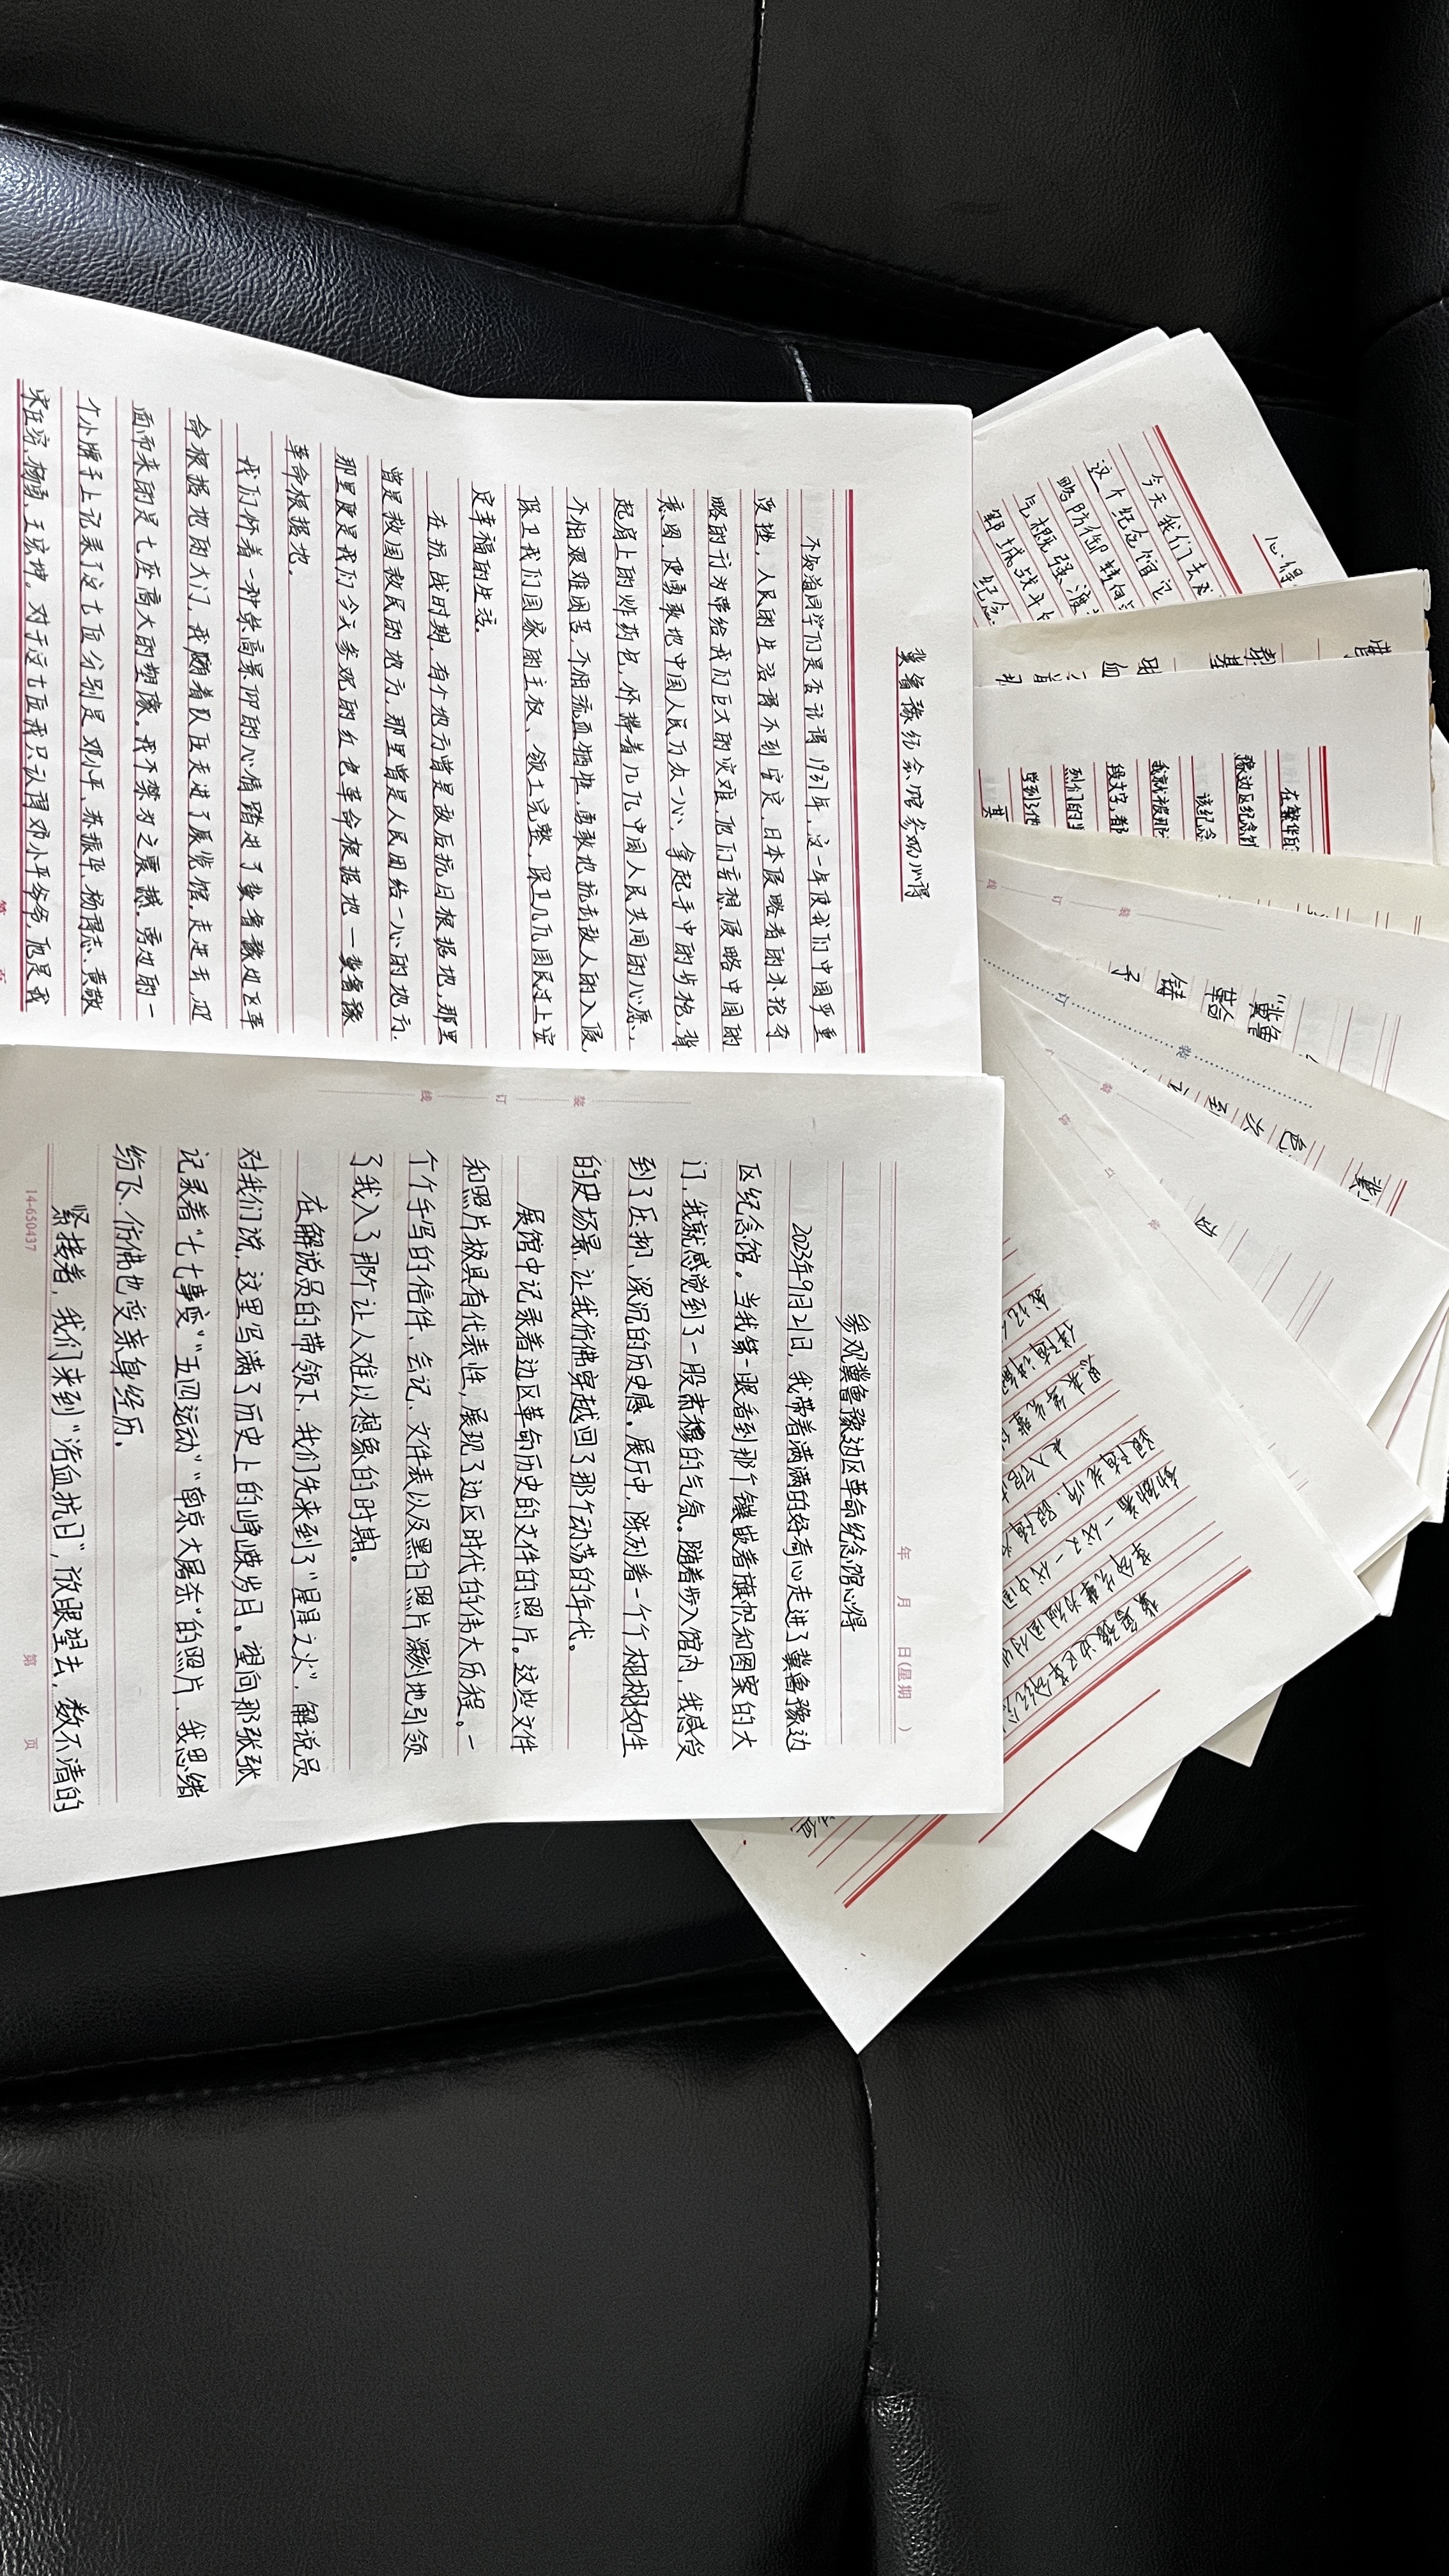 冀鲁豫纪念馆参观心得
不知道同学们是否记得1937年,这一年使我们中国严重
受挫,人民的生活得不到安定,日本侵略者的
略的行为带给我们巨大的灾难,他们妄想侵略中国的
意图,使勇敢地中国人民万众一心,拿起手中的步枪,背
起肩上的炸药包,怀揣着几亿中国人民共同的心愿,
不怕艰难困苦,不怕流血牺牲,勇敢地抗击敌人的入侵,
保卫我们国家的主权、领土完整,保卫几亿国民过上安
定幸福的生活。
在抗战时期,有个地方曾是敌后抗日根据地,那里
曾是救国救民的地方,那里曾是人民团结一心的地方,
那里便是我们今天参观的红色革命根据地—冀鲁豫
革命根据地。
我们怀着一种崇高景仰的心情踏进了冀鲁豫边区革
命根据地的大门,我随着队伍走进了展览馆,走进去,迎
面而来的是七座高大的塑像。我不禁为之震撼。旁边的一
个小牌子上记录了这七位分别是邓小平、苏振华、杨得志、黄敬
宋任穷、杨勇、王宏坤。对于这七位我只认得邓小平爷爷,他是我
年 月 日(星期 )
参观冀鲁豫边区革命纪念馆心得
2023年9月21日,我带着满满的好奇心走进了冀鲁豫边
区纪念馆。当我第一眼看到那个镶嵌着旗帜和图案的大
门,我就感觉到了一股肃穆的气氛。随着步入馆内,我感受
到了压抑、深沉的历史感。展厅中,陈列着一个个栩栩如生
的史场景,让我仿佛穿越回了那个动荡的年代。
展馆中记录着边区革命历史的文件的照片。这些文件
和照片极具有代表性,展现了边区时代的伟大历程。一
个个手写的信件、会记、文件表以及黑白照片深刻地引领
了我入了那个让人难以想象的时期。
在解说员的带领下,我们先来到了“星星之火”,解说员
对我们说,这里写满了历史上的峥嵘岁月。望向那张张
记录着“七七事变”“五四运动”“南京大屠杀”的照片,我思绪
纷飞,仿佛也受亲身经历。
紧接着,我们来到“浴血抗日”,放眼望去,数不清的
14-650437
第 页
装 订 线
心得
今天我们去
这个纪念馆它
略防御转
气概强渡
郓城战斗
纪念
在繁华的
豫边区纪念馆
该纪念
我就被
段文字,都
烈们的
学到
冀鲁豫边区革命纪念